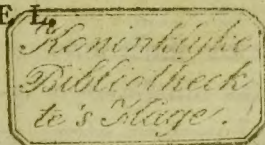 E L.
Koninklyke
Bibliotheek
te's Hage.